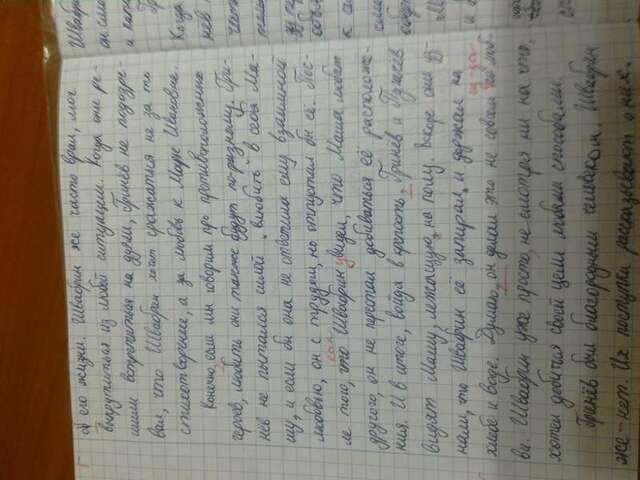 от его жизни. Швабрин же часто врал, мог
выкрутиться из любой ситуации. Когда они ре-
шили встретиться на дуэли, Гринёв не подозре-
вал, что Швабрин хочет сражаться не за то
стихотворение, а за любовь к Марье Ивановне.
Конечно, если мы говорим про противоположных
героев, любить они также будут по-разному. Гри-
нёв не пытался силой "влюбить" в себя Ма-
шу, и если бы она не ответила ему взаимной
любовью, он с трудом, но отпустил бы её. Пос-
ле того, как Швабрин увидел, что Маша любит
другого, он не пытался добиваться её расположе-
ния. И в итоге, войдя в крепость, Гринёв и Пугачёв
видят Машу, лежащую на полу. Вскоре они уз-
нали, что Швабрин её запирал и держал на
хлебе и воде. Думаю, он делал это не совсем из-за люб-
ви. Швабрин уже просто, не смотря ни на что,
хотел добиться своей цели любыми способами.
Гринёв был благородным человеком. Швабрин
же - нет. Их поступки рассказывают о них.